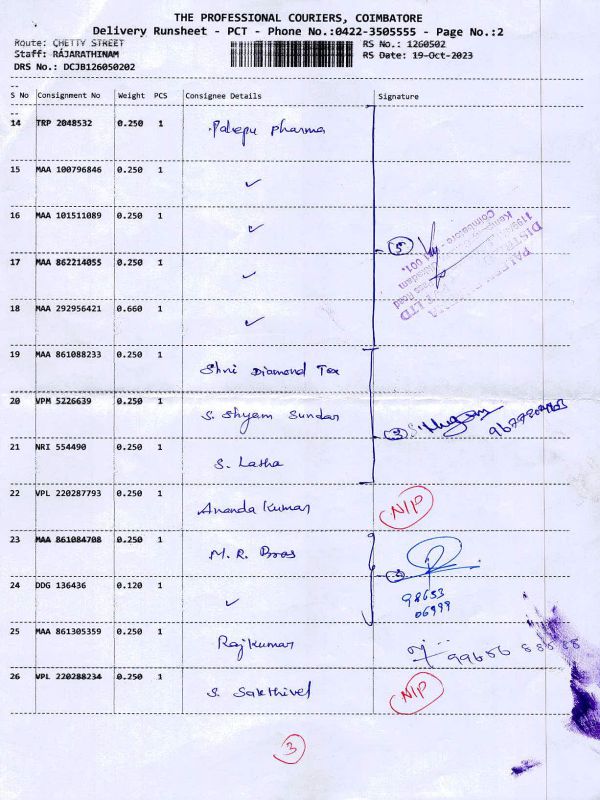 THE PROFESSIONAL COURIERS, COIMBATORE
Delivery Runsheet - PCT - Phone No.:0422-3505555 - Page No.:2
Route: CHETTY STREET RS No.: 1260502
Staff: RAJARATHINAM RS Date: 19-Oct-2023
DRS No.: DCJB126050202
S No Consignment No Weight PCS Consignee Details Signature
14 TRP 2048532 0.250 1 Palepu Pharma
15 MAA 100796846 0.250 1 ✓
16 MAA 101511089 0.250 1 ✓
5
17 MAA 862214055 0.250 1 ✓
18 MAA 292956421 0.660 1 ✓
19 MAA 861088233 0.250 1 Shri Diamond Tex
20 VPM 5226639 0.250 1 S. Shyam Sundar
3
21 NRI 554490 0.250 1 S. Latha
22 VPL 220287793 0.250 1 Ananda Kumar N/P
23 MAA 861084708 0.250 1 M. R. Bros
24 DDG 136436 0.120 1 ✓ 98653
06999
25 MAA 861305359 0.250 1 Rajkumar
26 VPL 220288234 0.250 1 S. Sakthivel N/P
3